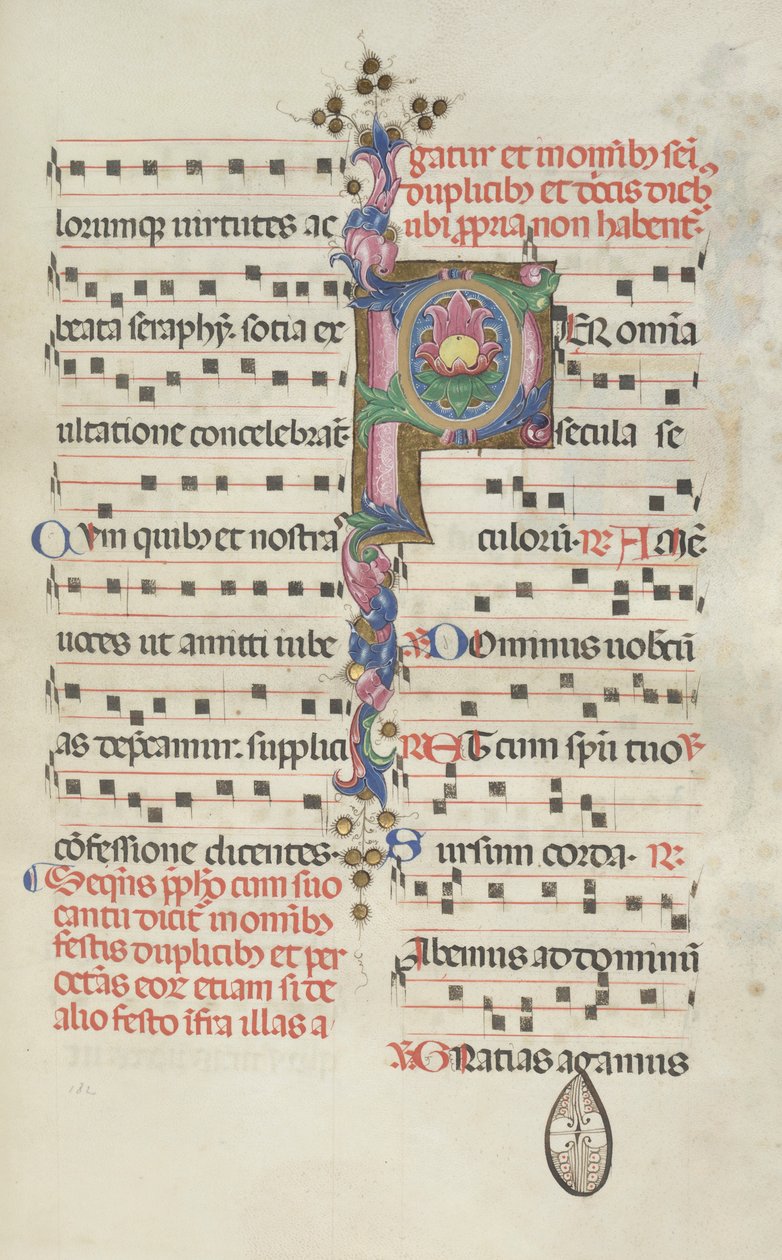 lorumq; uirtutes ac
beata seraphȳ. socia ex
ultatione concelebrāt.
Cum quib; et nostras
uoces ut amitti iube
as dep̄camur. supplici
cōfessione dicentes.
Seqn̄s p̄pħo cum suo
cantu dicit̄ in om̄ib;
festis duplicib; et per
octāas eoꝝ etiam si de
alio festo īfra illas a
gatur et in om̄ib; sēi
duplicib; et oc̄tis dieb;
ubi ꝓpria non habent̄.
PER om̄ia
secula se
culorū. R. Amē.
Dominus uobcū
R. Et cum spū tuo V
Sursum corda. R.
Abemus ad dominū
V. Gratias agamus
182